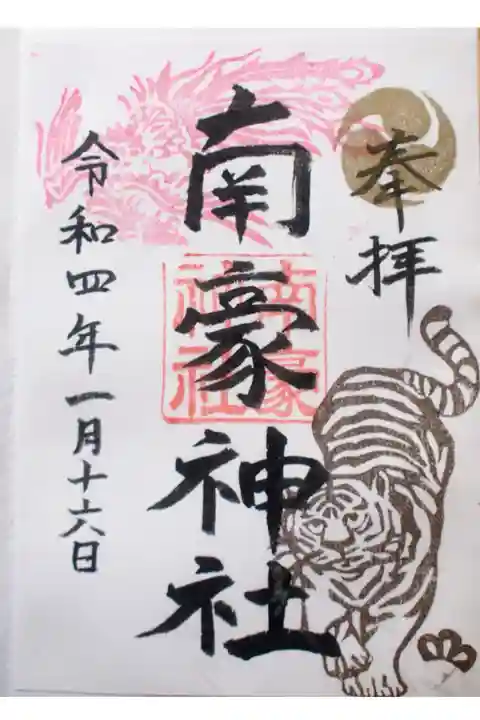 奉拝
南豪神社
南豪
神社
令和四年一月十六日